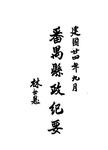 建國廿四年九月
番禺縣政紀要
林雲陔